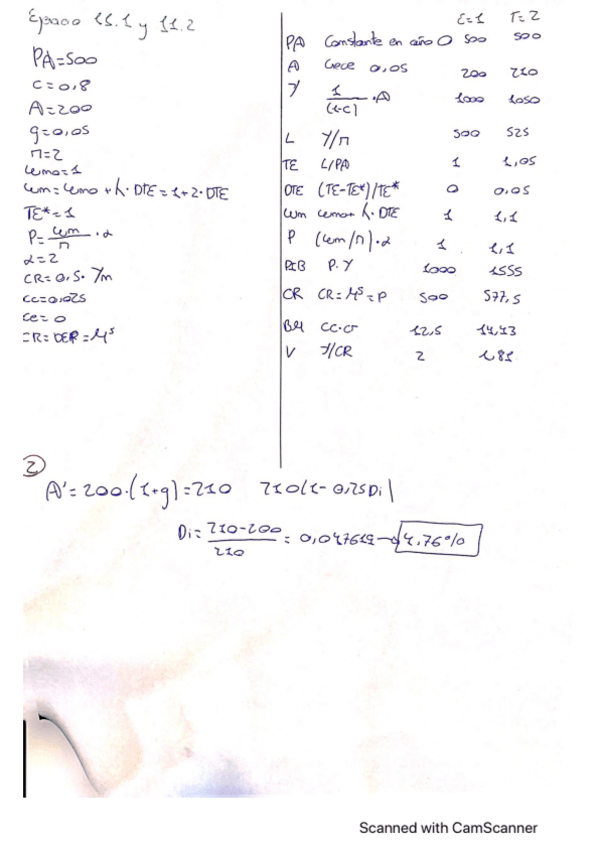 Ejercicio 11.1 y 11.2
PA=500
C=0,8
A=200
g=0,05
n=2
wmo=1
wm=wmo + h·DTE=1+2·DTE
TE*=1
P=wm/n·α
α=2
CR=0,5·Ym
cc=0,025
ce=0
CR=DEP=Mˢ
t=1 T=2
PA Constante en año 0 500 500
A Crece 0,05 200 210
Y 1/(1-c)·A 1000 1050
L Y/n 500 525
TE L/PA 1 1,05
DTE (TE-TE*)/TE* 0 0,05
wm wmo+h·DTE 1 1,1
P (wm/n)·α 1 1,1
PIB P·Y 1000 1555
CR CR=Mˢ=P 500 577,5
BM CC·cr 12,5 14,43
V Y/CR 2 1,81
2
A'=200·(1+g)=210 210(1-0,25Di)
Di=210-200/210=0,047619→4,76%
Scanned with CamScanner